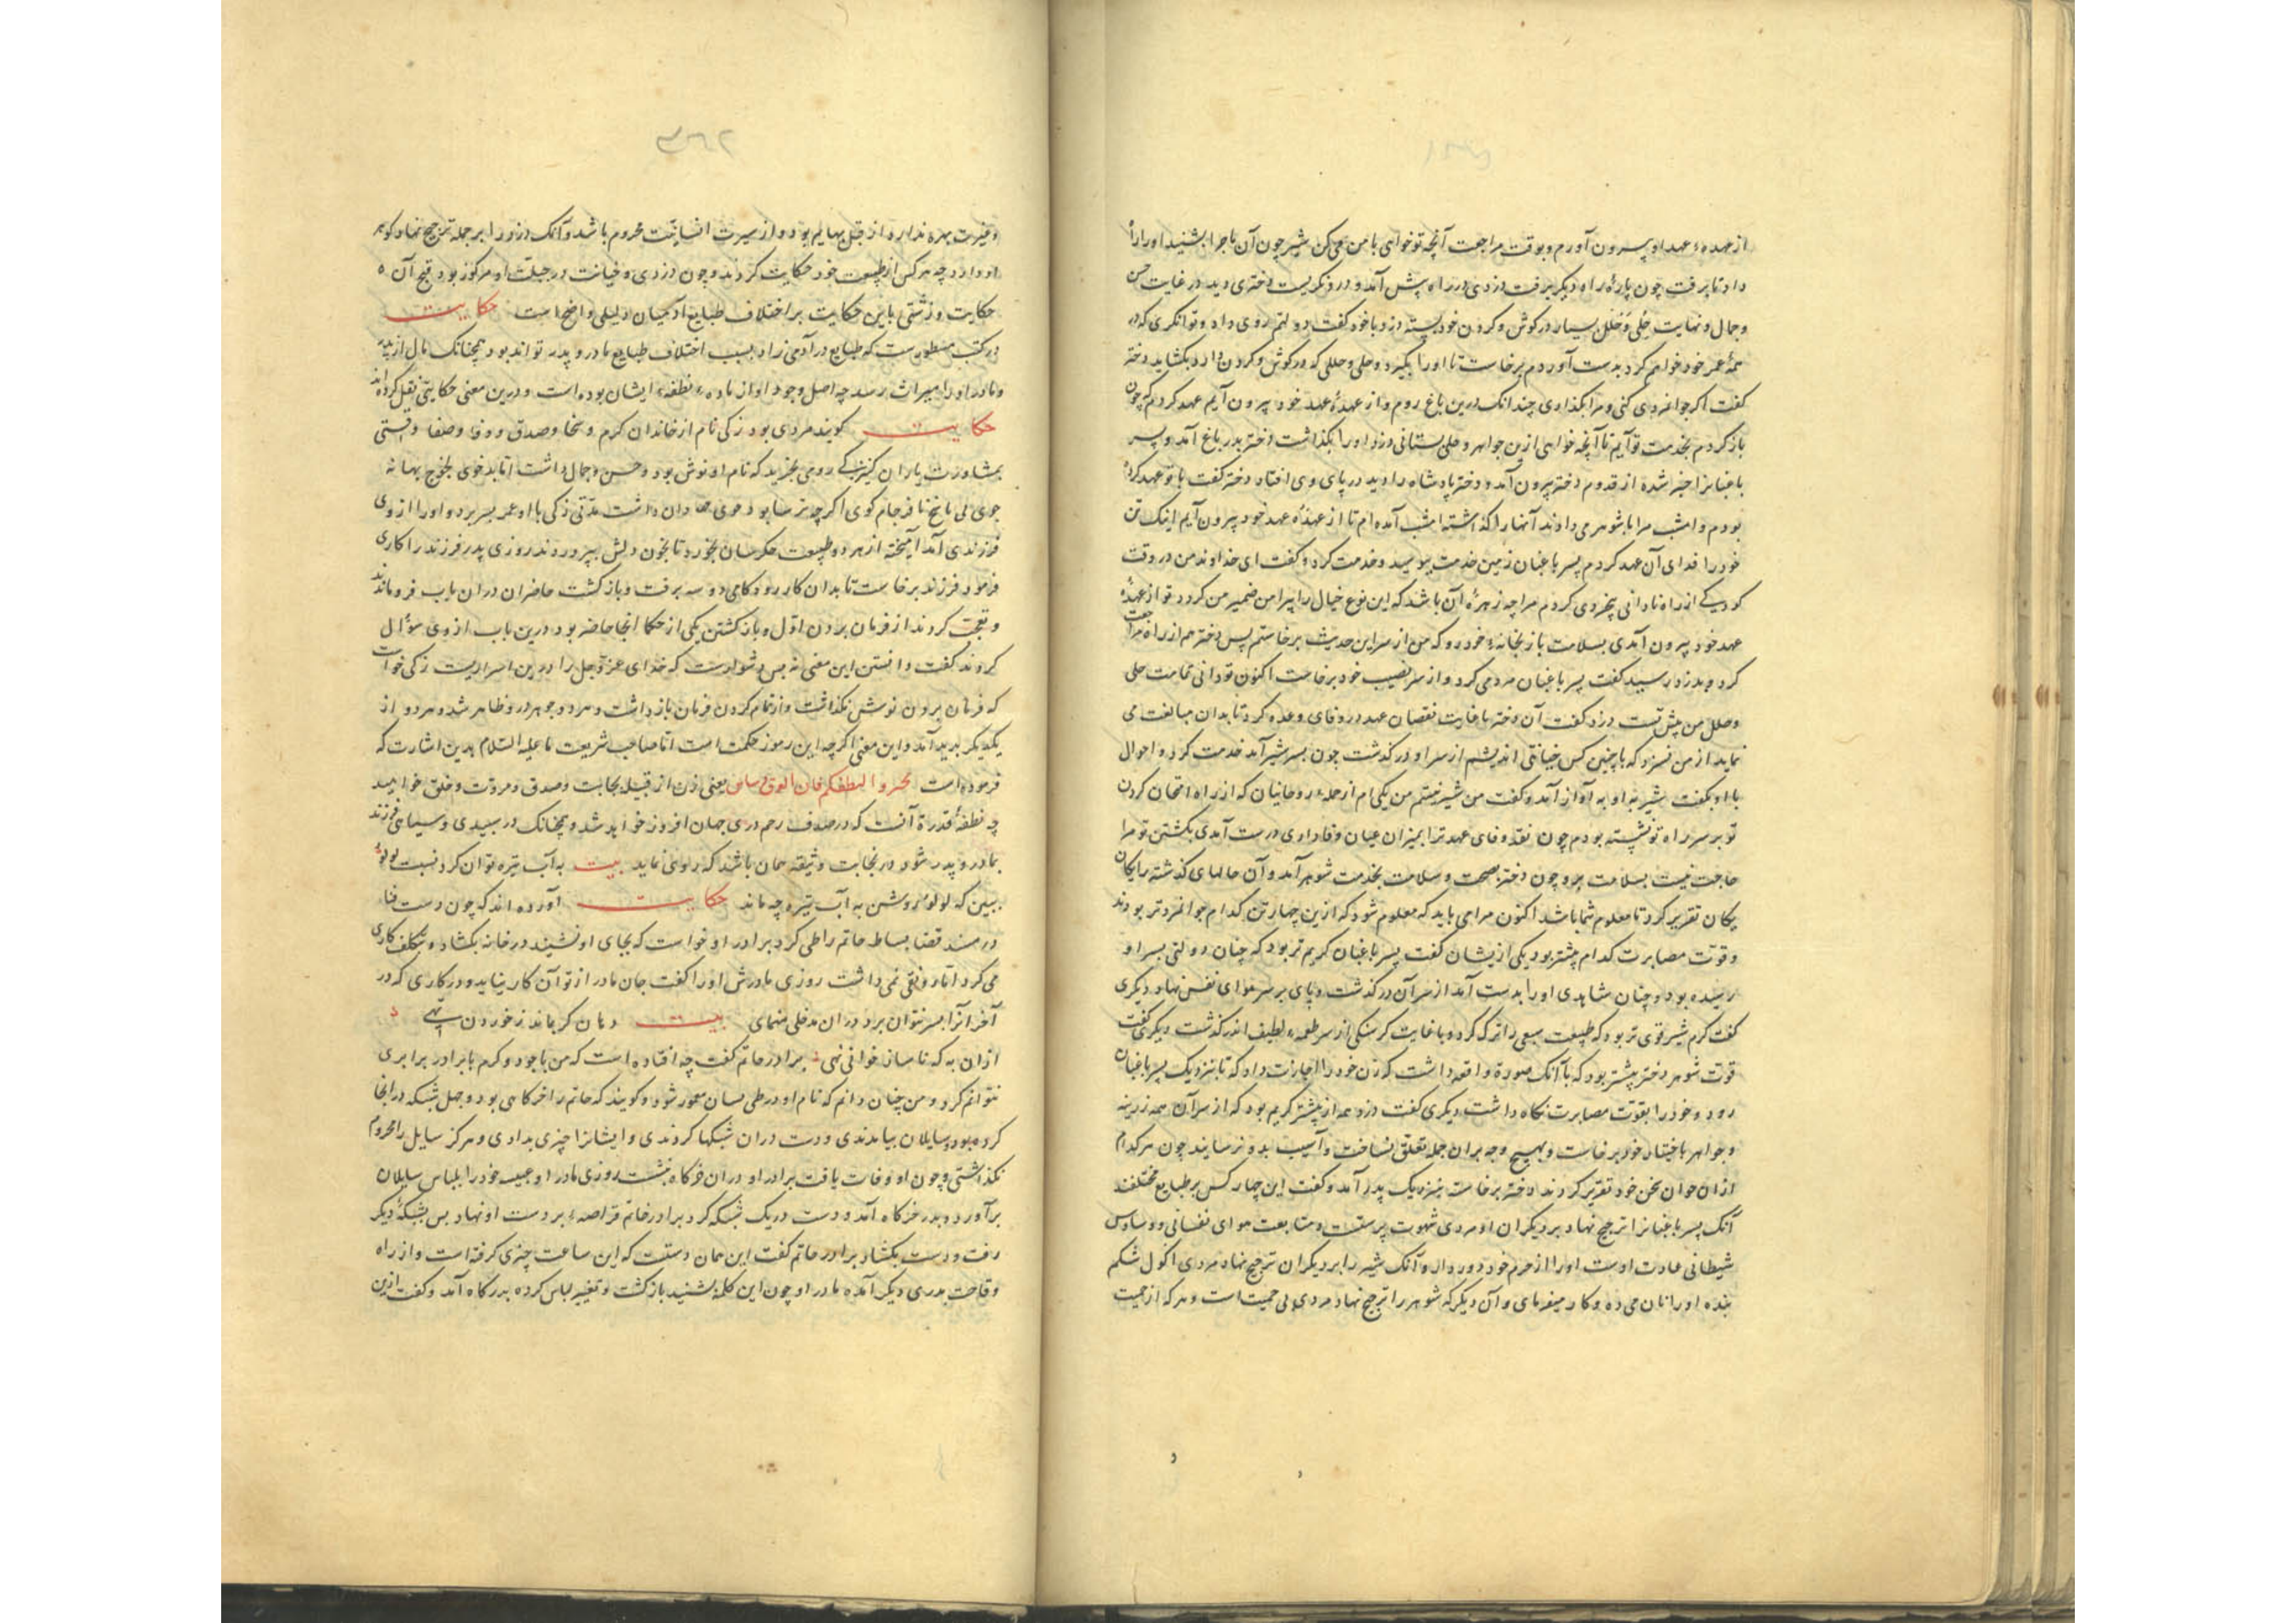 از عهدهٔ عهد او بیرون آورم و بوقت مراجعت آنچه تو خواهی با من می کن شیر چون آن ماجرا بشنید او را راه
داد تا برفت چون پارهٔ راه دیگر برفت دزدی در راه پیش آمد و درو نگریست دختری دید در غایت حسن
و جمال و نهایت حلی و حلل بسیار در گوش و گردن خود بسته دزد با خود گفت دولتم روی داد و توانگری که در
همهٔ عمر خود خواهم کرد بدست آوردم برخاست تا او را بگیرد و حلی و حللی که در گوش و گردن دارد بکشاید دختر
گفت اگر جوانمردی کنی و مرا بگذاری چندانک درین باغ روم و از عهدهٔ عهد خود بیرون آیم عهد کردم که چون
باز گردم بخدمت تو آیم تا آنچه خواهی ازین جواهر و حلی بستانی دزد او را بگذاشت دختر بدر باغ آمد و پسر
باغبانرا خبر شده از قدوم دختر بیرون آمد و دختر پادشاه را دید در پای وی افتاد دختر گفت با تو عهد کرده
بودم و امشب مرا با شوهر می دادند آنها را گذاشته امشب آمده ام تا از عهدهٔ عهد خود بیرون آیم اینک تن
خود را فدای آن عهد کردم پسر باغبان زمین خدمت ببوسید و خدمت کرد و گفت ای خداوند من در وقت
کودکی از راه نادانی بیخردی کردم مرا چه زهرهٔ آن باشد که این نوع خیال را پیرامن ضمیر من گردد تو از عهدهٔ
عهد خود بیرون آمدی بسلامت باز بخانهٔ خود رو که من از سر این حدیث برخاستم پس دختر هم از راه مراجعت
کرد و بدزد رسید گفت پسر باغبان مردمی کرد و از سر نصیب خود برخاست اکنون تو دانی تمامت حلی
و حلل من پیش تست دزد گفت آن دختر با غایت نقصان عهد در وفای وعده کرد تا بدان مبالغت می
نماید از من نسزد که با چنین کس خیانتی اندیشم از سر او در گذشت چون بسر شیر آمد خدمت کرد و احوال
با او بگفت شیر با او به آواز آمد و گفت من شیر نیستم من یکی ام از جملهٔ روحانیان که از راه امتحان کردن
تو بر سر راه تو نشسته بودم چون نقد وفای عهد ترا بمیزان عیان وفاداری درست آمدی بکشتن تو مرا
حاجت نیست بسلامت برو چون دختر بصحت و سلامت بخدمت شوهر آمد و آن حالهای گذشته را یکان
یکان تقریر کرد تا معلوم شما باشد اکنون مرا می باید که معلوم شود که ازین چهار تن کدام جوانمردتر بودند
و قوت مصابرت کدام بیشتر بود یکی ازیشان گفت پسر باغبان کریم تر بود که چنان دولتی بسر او
رسیده بود و چنان شاهدی او را بدست آمد از سر آن در گذشت و پای بر سر هوای نفس نهاد دیگری
گفت کرم شیر قوی تر بود که طبیعت سبعی را ترک کرد و با غایت گرسنگی از سر طعمهٔ لطیف اندر گذشت دیگری گفت
قوت شوهر دختر بیشتر بود که با آنک صورة واقعه داشت که زن خود را اجازت داد که تا بنزدیک پسر باغبان
رود و خود را بقوت مصابرت نگاه داشت دیگری گفت دزد همه از بیشتر کریم بود که از سر آن همه زرینه
و جواهر باختیار خود برخاست و بهیچ وجه بران جمله تعلق نساخت و آسیب بدو نرسانید چون هر کدام
ازان جوان سخن خود تقریر کردند دختر برخاست بنزدیک پدر آمد و گفت این چهار کس بر طبایع مختلفند
آنک پسر باغبانرا ترجیح نهاد بر دیگران او مردی شهوت پرستست و متابعت هوای نفسانی و وساوس
شیطانی عادت اوست او را از حرم خود دور دار و آنک شیر را بر دیگران ترجیح نهاد مردی اکول شکم
بنده او را نان می ده و کار میفرمای و آن دیگر که شوهر را ترجیح نهاد مردی بی حمیت است و هر که از حمیت
و غیرت بهره ندارد از قبیل بهایم بود و از سیرت انسانیت محروم باشد و آنک دزد را بر جمله ترجیح نهاد گوهر
او دارد چه هر کس از طبیعت خود حکایت کردند و چون دزدی و خیانت در جبلت او مرکوز بود قبح آن
حکایت و زشتی با این حکایت بر اختلاف طبایع آدمیان دلیلی واضح است حکایت
در کتب مسطورست که طبایع در آدمی زاد بسبب اختلاف طبایع مادر و پدر تواند بود همچنانک مال از پدر
و مادر او را میراث رسد چه اصل وجود او از مادهٔ نطفهٔ ایشان بوده است و درین معنی حکایتی نقل کرده اند
حکایت گویند مردی بود زکی نام از خاندان کرم و سخا و صدق و وفا و صفا
بمشاورت یاران کنیزکی رومی بخرید که نام او نوش بود و حسن و جمال داشت اما بدخوی لجوج بهانه
جوی بی پاسخ نافرجام گوی اگر چه ترسا بود خوی دران داشت مدتی زکی با او عمر بسر برد و او را از وی
فرزندی آمد آمیخته از هر دو طبیعت بخورد تا بخون دلش بپروردند روزی پدر فرزند را کاری
فرمود فرزند برخاست تا بدان کار رود گامی دو سه برفت و باز گشت حاضران دران باب فرو ماندند
و تعجب کردند از فرمان بردن اول و باز گشتن یکی از حکما آنجا حاضر بود درین باب از وی سؤال
کردند گفت دانستن این معنی نه بس دشوارست که خدای عز و جل را درین اسراریست زکی خواست
که فرمان برون نوشش نگذاشت و از تمام کردن فرمان باز داشت و هر دو جوهر درو ظاهر شد و هر دو از
یکدیگر بدید آمد و این معنی اگر چه این رموز حکمت است اما صاحب شریعت ما علیه السلام بدین اشارت که
فرموده است تخیروا لنطفکم فان العرق دساس یعنی زن از قبیلهٔ نجابت و صدق و مروت و خلق خواهید
چه نطفهٔ قدرة آنست که در صدف رحم دری جهان افروز خواهد شد و همچنانک در سپیدی و سیاهی فرزند
بمادر و پدر شود در نجابت و ثیقه همان باشد که راوی نماید بیت به آب تیره توان کرد نسبت لولو
ببین که لولوء روشن به آب تیره چه ماند حکایت آورده اند که چون دست فنا
در مسند قضا بساط حاتم را طی کرد برادر او خواست که بجای او نشیند در خانه بکشاد و بتکلف کاری
می کرد اما رونقی نمی داشت روزی مادرش او را گفت جان مادر از تو آن کار نیاید و در کاری که در
آخر آنرا بسر نتوان برد دران مدخلی منمای بیت دهان گر بماند ز خوردن تهی
ازان به که ناساز خوانی نهی برادر حاتم گفت چه افتاده است که من با جود و کرم با برادر برابری
نتوانم کرد و من چنان دانم که نام او در طی لسان محو شود و گویند که حاتم را خرگاهی بود و چهل شبکه در آنجا
کرده بود و سایلان بیامدندی و دست دران شبکها کردندی و ایشانرا چیزی بدادی و هرگز سایل را محروم
نگذاشتی و چون او وفات یافت برادر او دران خرگاه بنشست روزی مادر او جبیب خود را بلباس سایلان
برآورد و بدر خرگاه آمد و دست در یک شبکه کرد برادر حاتم قراضهٔ بر دست او نهاد پس بشبکهٔ دیگر
رفت و دست بکشاد برادر حاتم گفت این همان دستست که این ساعت چیزی گرفته است و از راه
وقاحت بدری دیگر آمده مادر او چون این کلمه بشنید باز گشت و تغییر لباس کرده بدرگاه آمد و گفت ازین